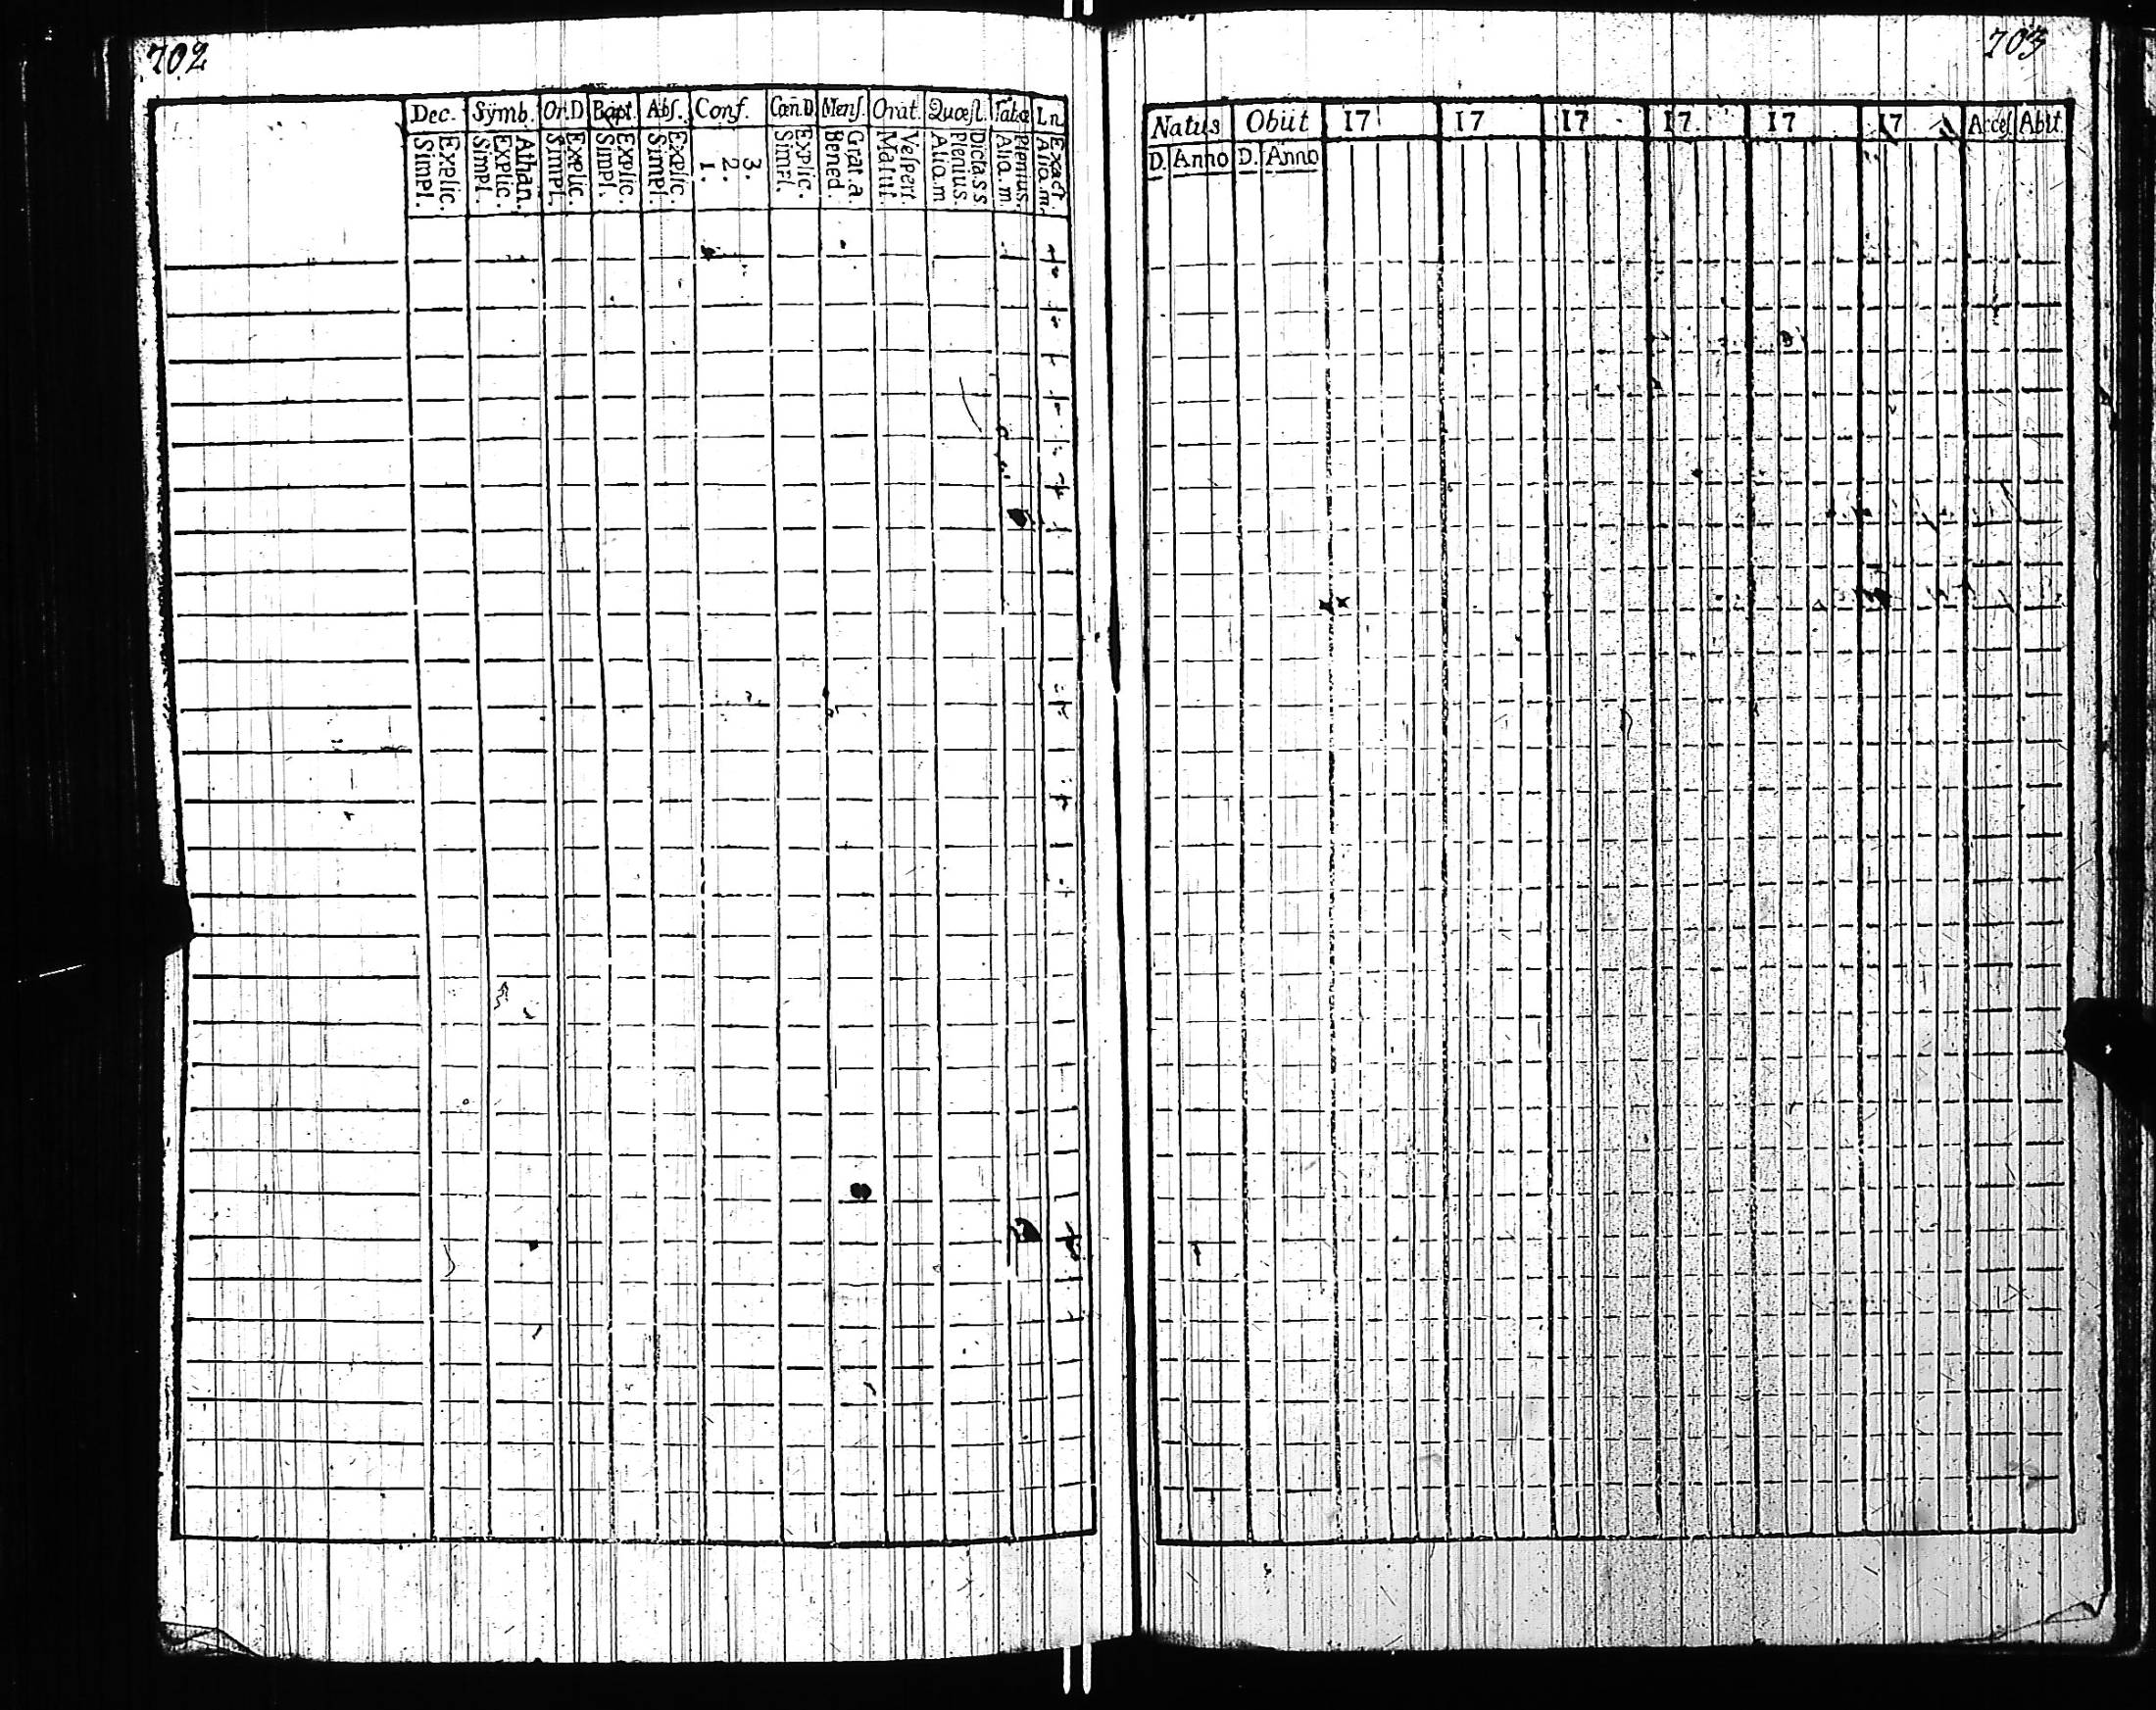 702
Dec. Symb. Or.D Bapt. Abſ. Conf. Cœn.D. Menſ. Orat. Quæſt. Tabæ In
Explic. Simpl. Athan. Explic. Simpl. Explic. Simpl. Explic. Simpl. Explic. Simpl. 3. 2. 1. Explic. Simpl. Grat.a Bened. Veſpert. Matut. Dicta s s Plenius. Alio.m Plenius. Alio.m Exact. Alio.m.
703
Natus Obiit 17 17 17 17 17 17 Acceſ. Abiit
D. Anno D. Anno